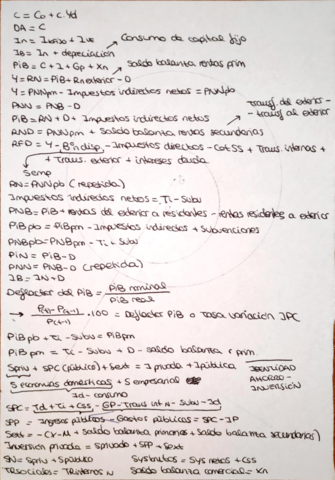 C = Co + c·Yd
DA = C
In = Ibruto + Ive
IB = In + depreciación → Consumo de capital fijo
PiB = C + I + Gp + Xn → Saldo balanza rentas prim
Y = RN = PiB + Rn exterior - D
Y = PNNpm - Impuestos indirectos netos = PNNpb
PNN = PNB - D
Transf. del exterior -
- transf al exterior
PiB = RN + D + Impuestos indirectos netos
RND = PNNpm + Saldo balanza rentas secundarias
RFD = Y - Bºn disp - Impuestos directos - Cot SS + Trans internas +
+ Trans. exterior + intereses deuda
Semp
RN = PNNpb (repetida)
Impuestos indirectos netos = Ti - Subv
PNB = PiB + rentas del exterior a residentes - rentas residentes a exterior
PiB pb = PiBpm - Impuestos indirectos + Subvenciones
PNBpb = PNBpm - Ti + Subv
PiN = PiB - D
PNN = PNB - D (repetida)
IB = IN + D
Deflactor del PiB = PiB nominal / PiB real
→ P(t) - P(t-1) / P(t-1) · 100 = Deflactor PiB o Tasa variación IPC
PiB pb + Ti - Subv = PiBpm
PiB pm = Ti - Subv + D - saldo balanza r prim.
Spriv + SPC (público) + Sext = I privada + I pública
IDENTIDAD
AHORRO -
INVERSIÓN
S economías domésticas + S empresarial
Yd - consumo
SPC = Td + Ti + Css - GP - Trans int n - Subv - Id
SPP = Ingresos públicos - Gastos públicos = SPC - IP
Sext = -(X - M + saldo balanza primarias + Saldo balanza secundarias)
Inversión privada = Sprivado + SPP + Sext
SN = Spriv + Spúblico
Sybrutos = Sys netos + CSS
TRsociales = TRinternas N
Saldo balanza comercial = Xn